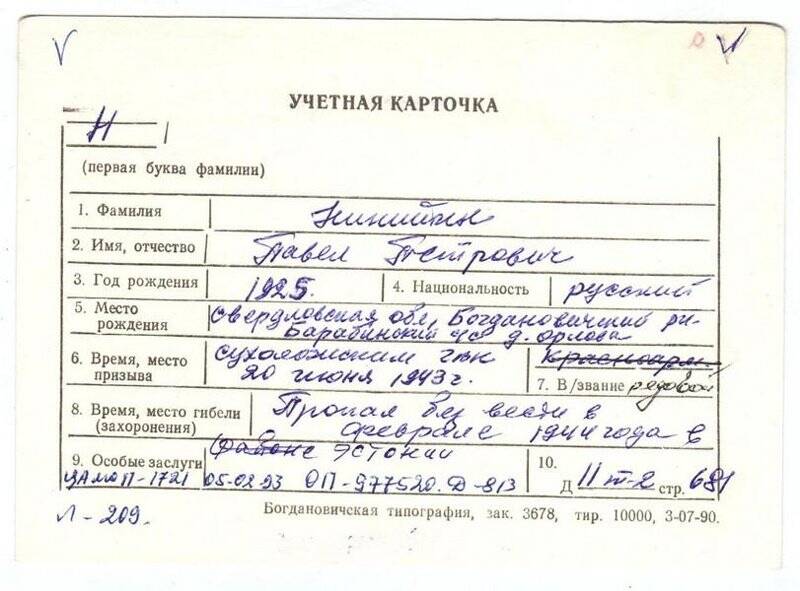 УЧЕТНАЯ КАРТОЧКА
Н
(первая буква фамилии)
1. Фамилия
2. Имя, отчество Павел Петрович
3. Год рождения 1925. 4. Национальность русский
5. Место рождения Свердловская обл, Богдановичский р-н
Барабинский с/с д. Орлова
6. Время, место призыва Сухоложским
20 июня 1943 г.
Красноарм.
7. В/звание рядовой
8. Время, место гибели (захоронения) Пропал без вести в
феврале 1944 года в
районе Эстонии
9. Особые заслуги
ЦАМО П-1721 05-02-93 ОП-977520. Д-813
10. Д 11 т-2 стр. 681
Л-209.
Богдановичская типография, зак. 3678, тир. 10000, 3-07-90.